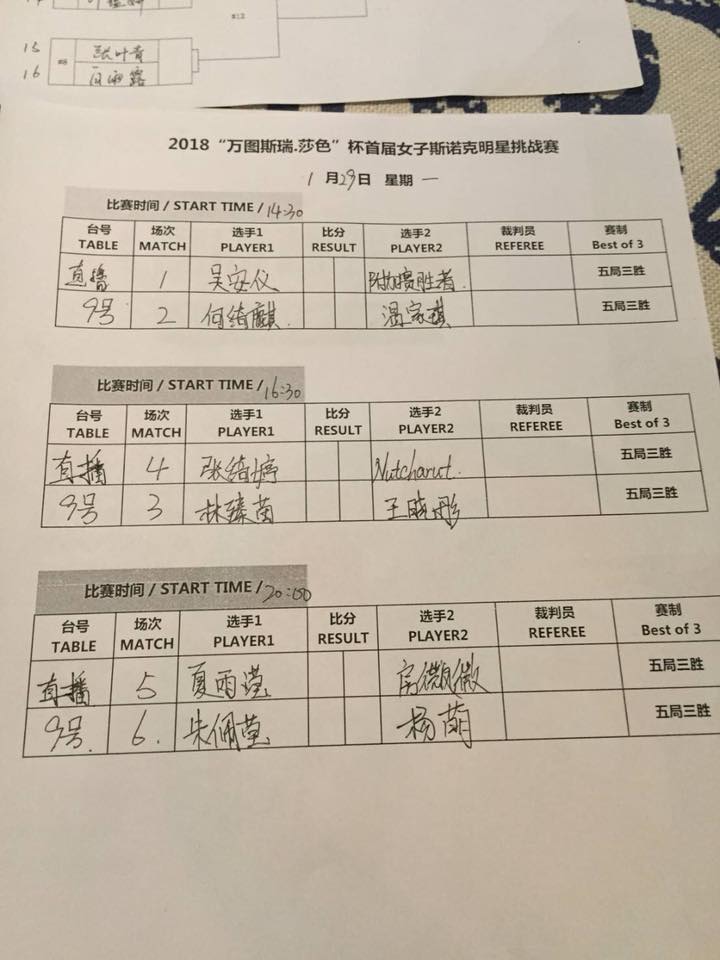 #12
15 #8 张叶青
16 白雨露
2018“万图斯瑞.莎色”杯首届女子斯诺克明星挑战赛
1月29日 星期 一
比赛时间 / START TIME / 14:30
台号 场次 选手1 比分 选手2 裁判员 赛制
TABLE MATCH PLAYER1 RESULT PLAYER2 REFEREE Best of 3
直播 1 吴安仪 附加赛胜者. 五局三胜
9号 2 何绮麒. 温家琪 五局三胜
比赛时间 / START TIME / 16:30
台号 场次 选手1 比分 选手2 裁判员 赛制
TABLE MATCH PLAYER1 RESULT PLAYER2 REFEREE Best of 3
直播 4 张绮婷 Nutcharut. 五局三胜
9号 3 林臻茵 王晓彤 五局三胜
比赛时间 / START TIME / 20:00
台号 场次 选手1 比分 选手2 裁判员 赛制
TABLE MATCH PLAYER1 RESULT PLAYER2 REFEREE Best of 3
直播 5 夏雨滢 房微微 五局三胜
9号. 6. 朱佩莹 杨萌 五局三胜